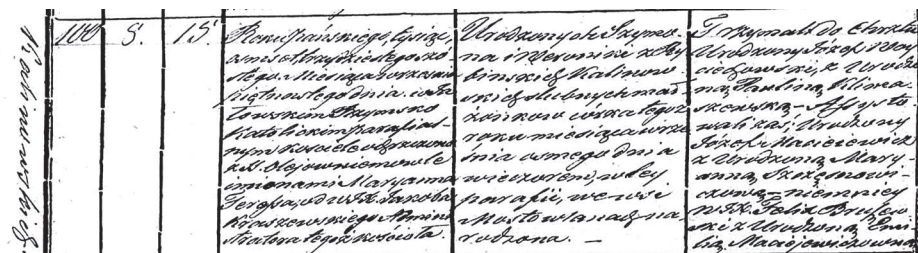 Kalinowskich
100 5. 15.
Roku Pańskiego, tysiąc,
osmset trzydziestego szó-
stego. Miesiąca września
piętnastego dnia. w Ja-
towskim Rzymsko
Katolickim parafial-
nym kościele ochrzczono
z S. Olejów niemowle
imionami Maryanna
Teressa, od W. JX. Jakóba
Kraszewskiego Admini-
stratora tegoż kościoła.
Urodzonych Szymo-
na i Weroniki z Ry-
bińskich Kalinow-
skich ślubnych mał-
żonków córka tegoż
roku miesiąca wrze-
śnia osmego dnia
wieczorem, w tey
parafii, we wsi
Mostowlanach na-
rodzona. —
Trzymali do Chrztu
Urodzony Józef Woy-
ciechowski, z Urodzo-
ną Pauliną Klima-
szewską — Assysto-
wali zaś, Urodzony
Józef Maciejewicz
z Urodzoną Mary-
anną
niemniey
W. JX. Felix
ski z Urodzoną Emi-
lią Maciejewiczówną